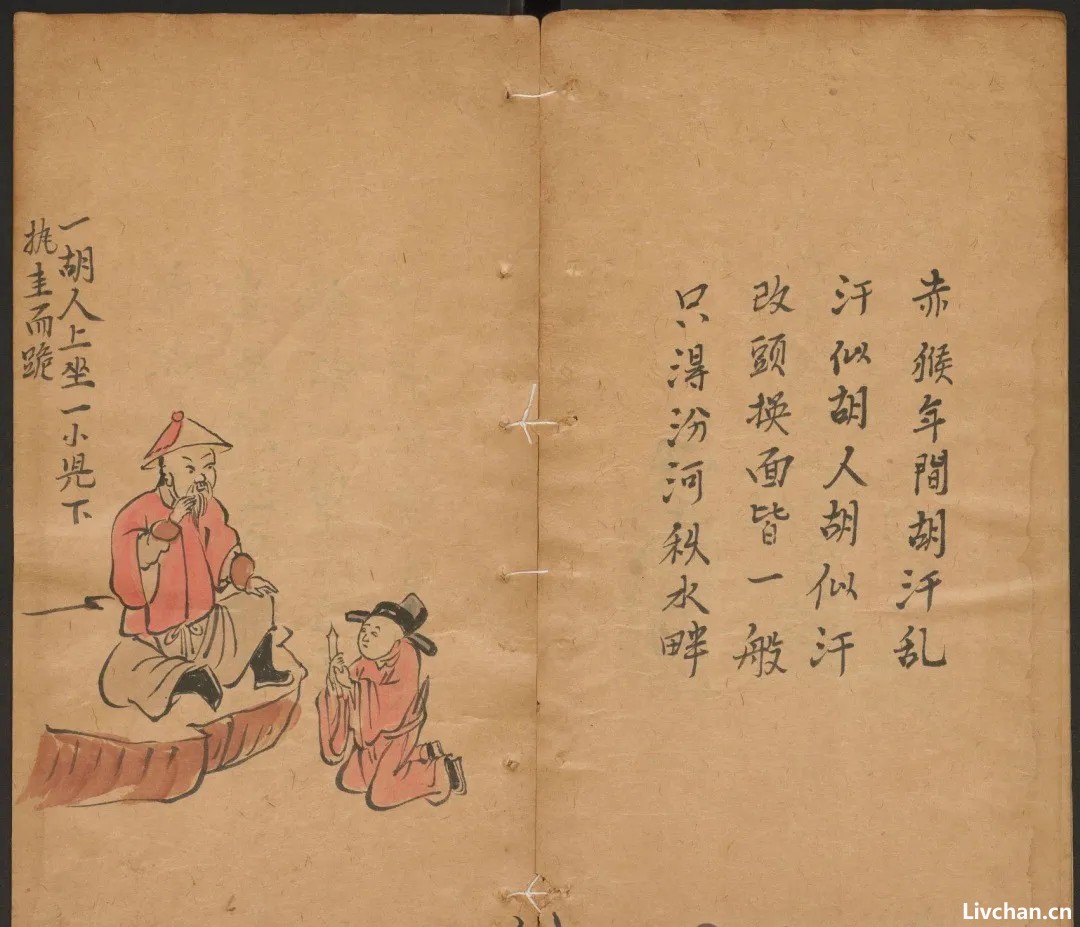 赤猴年間胡汗乱
汗似胡人胡似汗
改頭換面皆一般
只得汾河秋水畔
一胡人上坐一小児下
执圭而跪
Livchan.cn